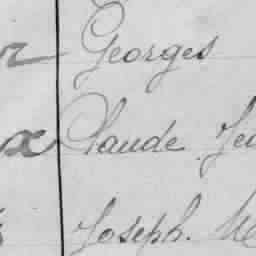 Georges
x Claude Je
Joseph. Me